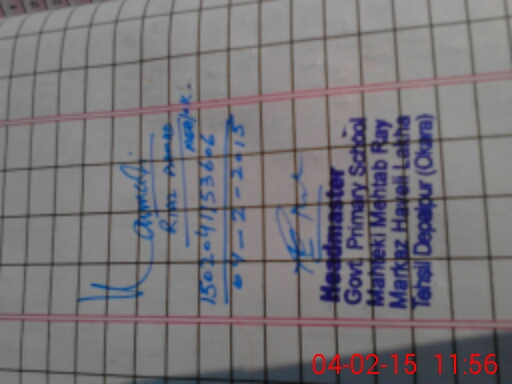 Riaz Ahmad
1502041153606
04-2-2015
Headmaster
Govt. Primary School
Mahteki Mehtab Ray
Markaz Haveli Lakha
Tehsil Depalpur (Okara)
04-02-15 11:56